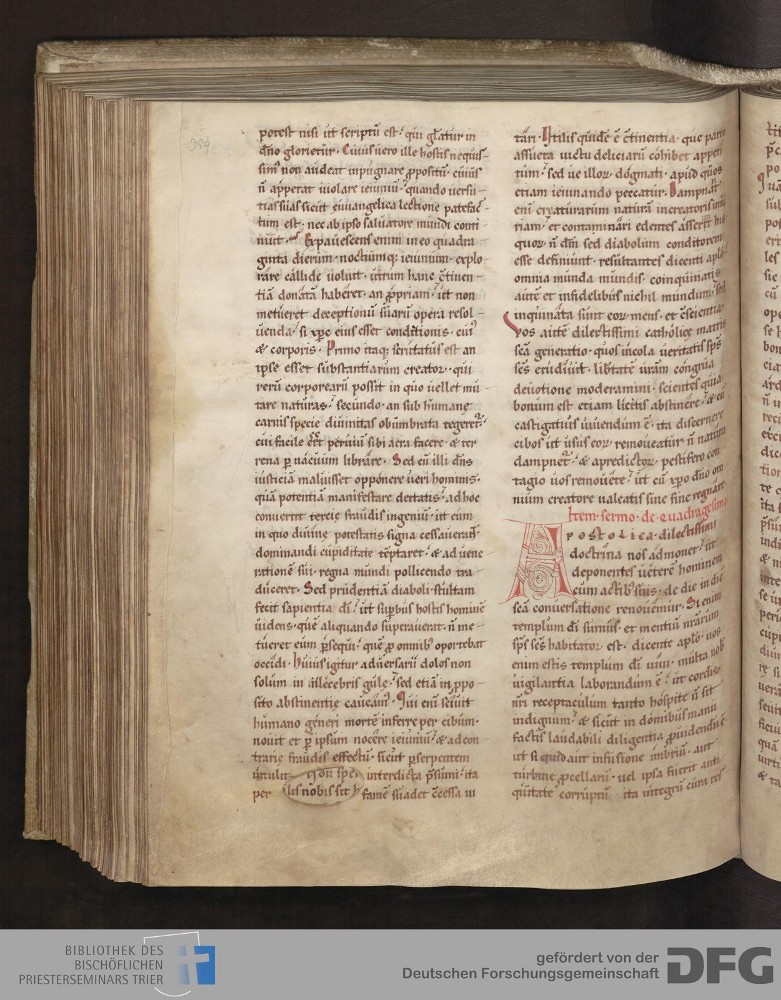 potest nisi ut scriptū est · qui gl̄atur in
dño glorietur · Cuius uero ille hostis nequis-
simꝰ non audeat inpugnare ꝓpositū · cuius
n̄ apperat uiolare ieiuniū · quando uersu-
tias suas sicut euuangelica lectione patefac-
tum est · nec ab ipso saluatore mundi conti-
nuit · Expauescens enim in eo quadra-
ginta dierum · noctiumq; ieiunium · explo-
rare callide uoluit · utrum hanc c̄tinen-
tiā donatā haberet · an ꝓpriam · ut non
metueret deceptionū suarū opera resol-
uenda · si xp̄c eius esset condit̄ionis · cuiꝰ
& corporis · Primo itaq; scrutatus est an
ipse esset substantiarum creator · qui
rerū corporearū possit in quo uellet mu-
tare naturas · secundo · an sub humane
carnis specie diuinitas obumbrata tegeret᷑ ·
cui facile eēt peruiū sibi aera facere · & ter-
rena ꝑ uacuum librare · Sed cū illi dñs
iusticiā maluisset opponere ueri hominis ·
quā potentiā manifestare deitatis · ad hoc
conuertit tercie fraudis ingeniū · ut eum
in quo diuine potestatis signa cessauerant ·
dominandi cupiditate tēptaret · & ad uene-
rationē sui · regna mundi pollicendo tra-
duceret · Sed prudentiā diaboli stultam
fecit sapientia dī · ut supbus hostis hominē
uidens · quē aliquando superauerat · n̄ me-
tueret eum ꝑsequi · quē ꝓ omnibꝰ oportebat
occidi · huius igitur aduersarii dolos non
solum in illecebris gule · sed etiā in ꝓpo-
sito abstinentie caueamꝰ · Qui enī sciuit
humano generi mortē inferre per cibum ·
nouit et ꝑ ipsum nocere ieiuniū · & ad con-
trarie fraudis effectū · sicut ꝑ serpentem
interdicta p̄sumi · ita
per famē suadet c̄cessa ui
tari · Utilis quidē ē c̄tinentia · que
assueta uictu deliciarū cohibet
tum · sed ue illoꝝ dogmati · apud quos
etiam ieiunando peccatur · Dampnant
enī creaturarum naturā in creatoris
riam · et contaminari edentes asserit
quoꝝ n̄ dm̄ sed diabolum conditorem
esse definiunt · resultantes dicenti
omnia munda mundis · coinquinatis
autē et infidelibus nichil mundum · sed
inquinata sunt eoꝝ mens · et c̄scientia
Vos autē dilectissimi catholice matris
scā generatio · quos in scola ueritatis sp̄s
scs̄ erudiuit · libtatē urām congrua
deuotione moderamini · scientes quia
bonum est etiam licitis abstinere · &
castigatius uiuendum ē · ita discernere
cibos ut usus eoꝝ remoueatur · n̄ natura
dampnet᷑ · & a predictoꝝ pestifero con-
tagio uos remouete · ut cū xp̄o dño om-
nium creatore ualeatis sine fine regnare
Item · sermo · de · quadragesima
APOSTOLICA · dilectissimi
doctrina nos admonet · ut
deponentes ueterē hominem
cum actibꝰ suis · de die in diē
scā conuersatione renouemur · Si enim
templum dī sumus · et mentiū nrārum
sp̄s scs̄ habitator est · dicente aplō · uos
enim estis templum dī uiui · multa nob̄
uigilantia laborandum ē · ut cordis
nrī receptaculum tanto hospite n̄ sit
indignum · & sicut in domibus manu
factis laudabili diligentia ꝓuidendū ē
ut si quid aut infusione imbriū · aut
turbine ꝓcellarū · uel ipsa fuerit anti-
quitate corruptū ita integrū cura
BIBLIOTHEK DES
BISCHÖFLICHEN
PRIESTERSEMINARS TRIER
gefördert von der
Deutschen Forschungsgemeinschaft
DFG